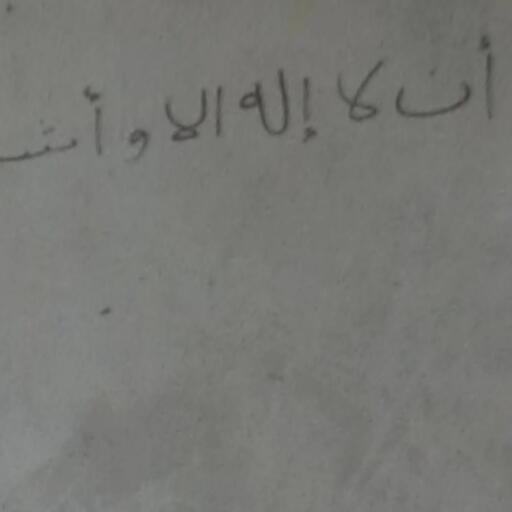 أن لا إله الا و أشـ